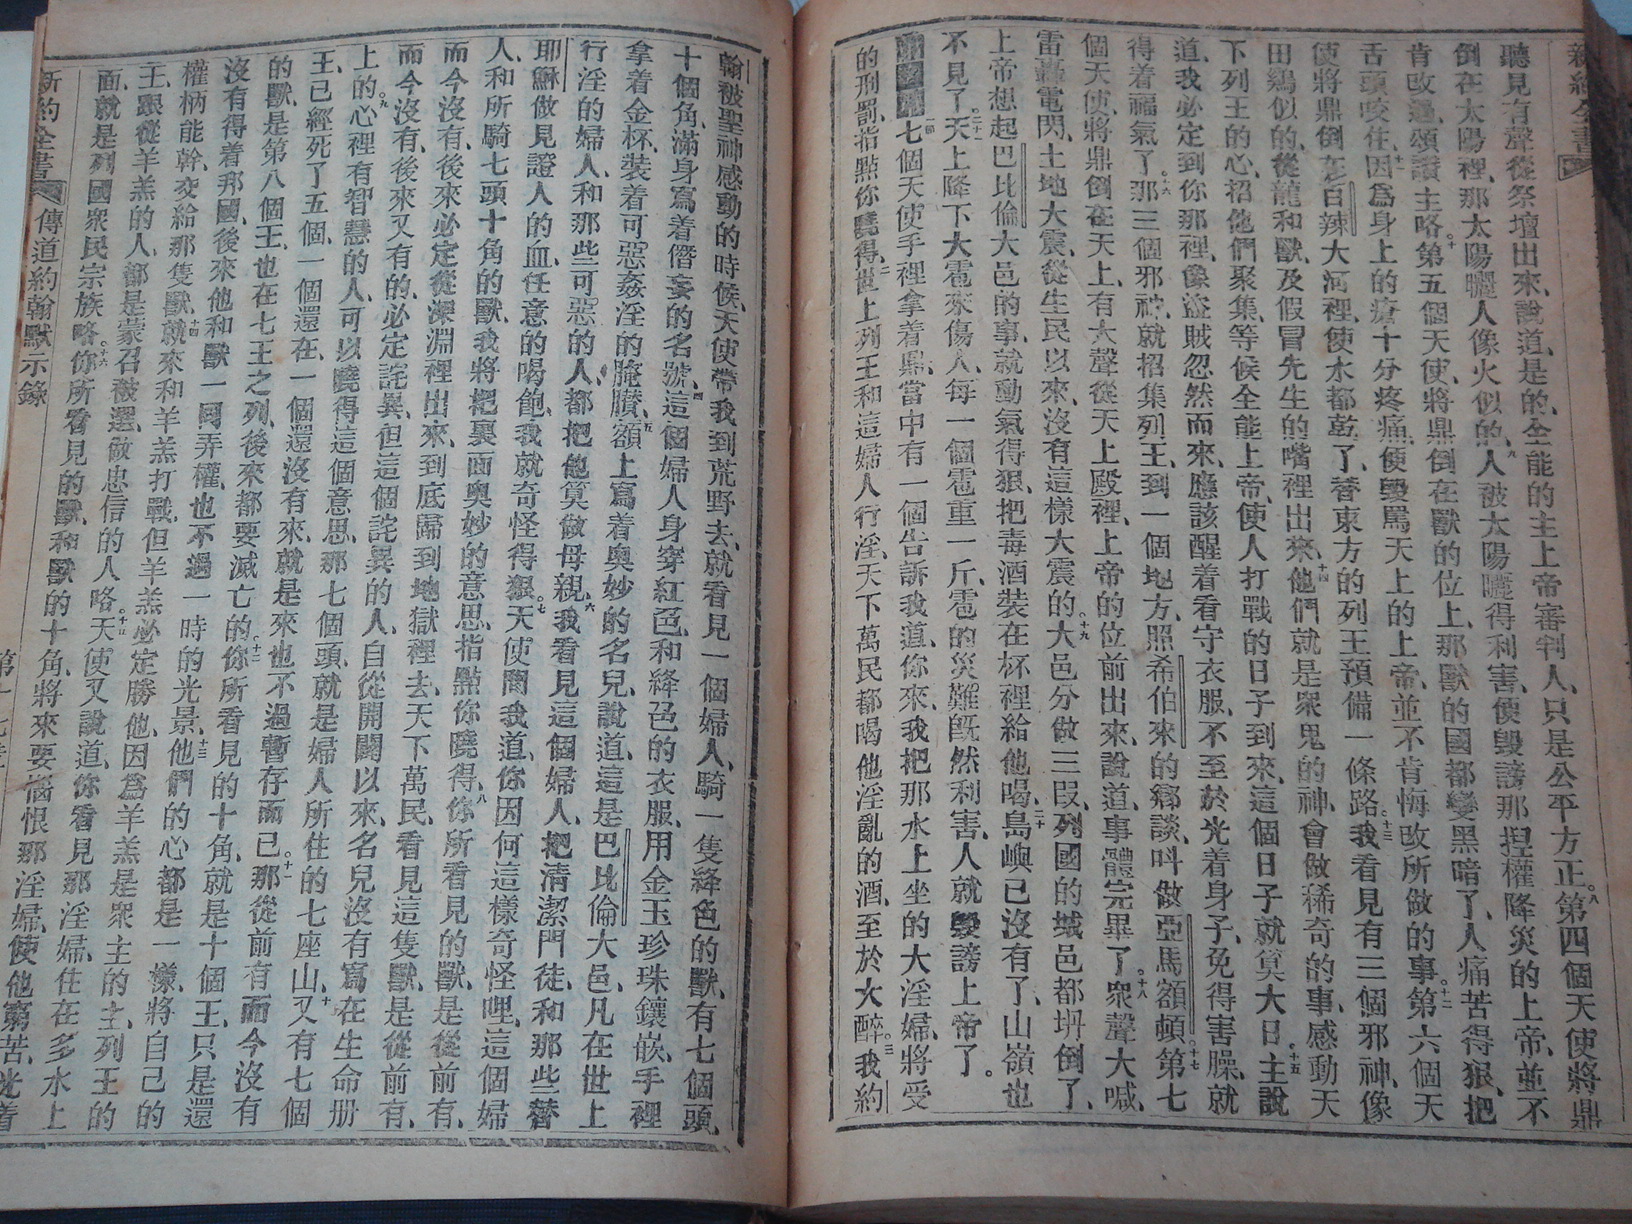 新約全書
聽見有聲從祭壇出來、說道、是的、全能的主上帝審判人、只是公平方正。八第四個天使將鼎
倒在太陽裡、那太陽曬人像火似的、九人被太陽曬得利害、便毀謗那揑權降災的上帝、並不
肯改過、頌讚主略。十第五個天使、將鼎倒在獸的位上、那獸的國都變黑暗了、人痛苦得狠、把
舌頭咬住、十一因爲身上的瘡十分疼痛、便毀罵天上的上帝、並不肯悔改所做的事。十二第六個天
使將鼎倒在百辣大河裡、使水都乾了、替東方的列王預備一條路。十三我看見有三個邪神、像
田鷄似的、從龍和獸、及假冒先生的嘴裡出來、十四他們就是衆鬼的神、會做稀奇的事、感動天
下列王的心、招他們聚集、等候全能上帝、使人打戰的日子到來、這個日子就算大日。十五主說
道、我必定到你那裡、像盜賊忽然而來、應該醒着看守衣服、不至於光着身子、免得害臊、就
得着福氣了。十六那三個邪神、就招集列王、到一個地方、照希伯來的鄉談、呌做亞馬額頓。十七第七
個天使、將鼎倒在天上、有大聲從天上殿裡、上帝的位前出來、說道、事體完畢了。十八衆聲大喊、
雷轟電閃、土地大震、從生民以來、沒有這樣大震的。十九大邑分做三段、列國的城邑都坍倒了、
上帝想起巴比倫大邑的事、就動氣得狠、把毒酒裝在杯裡給他喝、二十島嶼已沒有了、山嶺也
不見了。二十一天上降下大雹來傷人、每一個雹重一斤、雹的災難旣然利害、人就毀謗上帝了。
七個天使手裡拿着鼎、當中有一個告訴我道、你來、我把那水上坐的大淫婦、將受
的刑罰、指點你曉得、二世上列王和這婦人行淫、天下萬民都喝他淫亂的酒、至於大醉。三我約
翰被聖神感動的時候、天使帶我到荒野去、就看見一個婦人、騎一隻絳色的獸、有七個頭、
十個角、滿身寫着僭妄的名號、四這個婦人身穿紅色、和絳色的衣服、用金玉珍珠鑲嵌、手裡
拿着金杯、裝着可惡姦淫的腌臢、五額上寫着奧妙的名兒、說道、這是巴比倫大邑、凡在世上
行淫的婦人、和那些可惡的人、都把他算做母親、六我看見這個婦人、把清潔門徒、和那些替
耶穌做見證人的血、任意的喝飽、我就奇怪得狠。七天使問我道、你因何這樣奇怪哩、這個婦
人和所騎七頭十角的獸、我將把裏面奧妙的意思、指點你曉得、八你所看見的獸、是從前有、
而今沒有、後來必定從深淵裡出來、到底歸到地獄裡去、天下萬民、看見這隻獸、是從前有、
而今沒有、後來又有的、必定詫異、但這個詫異的人、自從開闢以來、名兒沒有寫在生命册
上的。九心裡有智慧的人、可以曉得這個意思、那七個頭、就是婦人所住的七座山、十又有七個
王、已經死了五個、一個還在、一個還沒有來、就是來也不過暫存而已。十一那從前有而今沒有
的獸、是第八個王、也在七王之列、後來都要滅亡的。十二你所看見的十角、就是十個王、只是還
沒有得着邦國、後來他和獸一同弄權、也不過一時的光景、十三他們的心都是一樣、將自己的
權柄能幹、交給那隻獸、十四就來和羊羔打戰、但羊羔必定勝他、因爲羊羔是衆主的主、列王的
王、跟從羊羔的人、都是蒙召被選、做忠信的人略。十五天使又說道、你看見那淫婦、住在多水上
面、就是列國衆民宗族略。十六你所看見的獸、和獸的十角、將來要惱恨那淫婦、使他窮苦、光着
新約全書 傳道約翰默示錄 第十七章